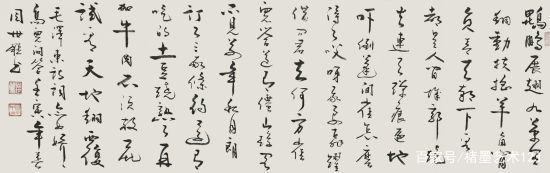 鹍鹏展翅九万里
翻动扶摇羊角背
负青天朝下看
都是人间城郭炮
火连天弹痕遍地
吓倒蓬间雀怎么
得了哎呀我要飞跃
借问君去何方雀
儿答道有仙山琼阁
不见前年秋月朗
订了三家条约还有
吃的土豆烧熟了再
加牛肉不须放屁
试看天地翻覆
毛泽东诗词念奴娇
鸟儿问答壬寅年春
周世 书
百家号/楮墨艺术121